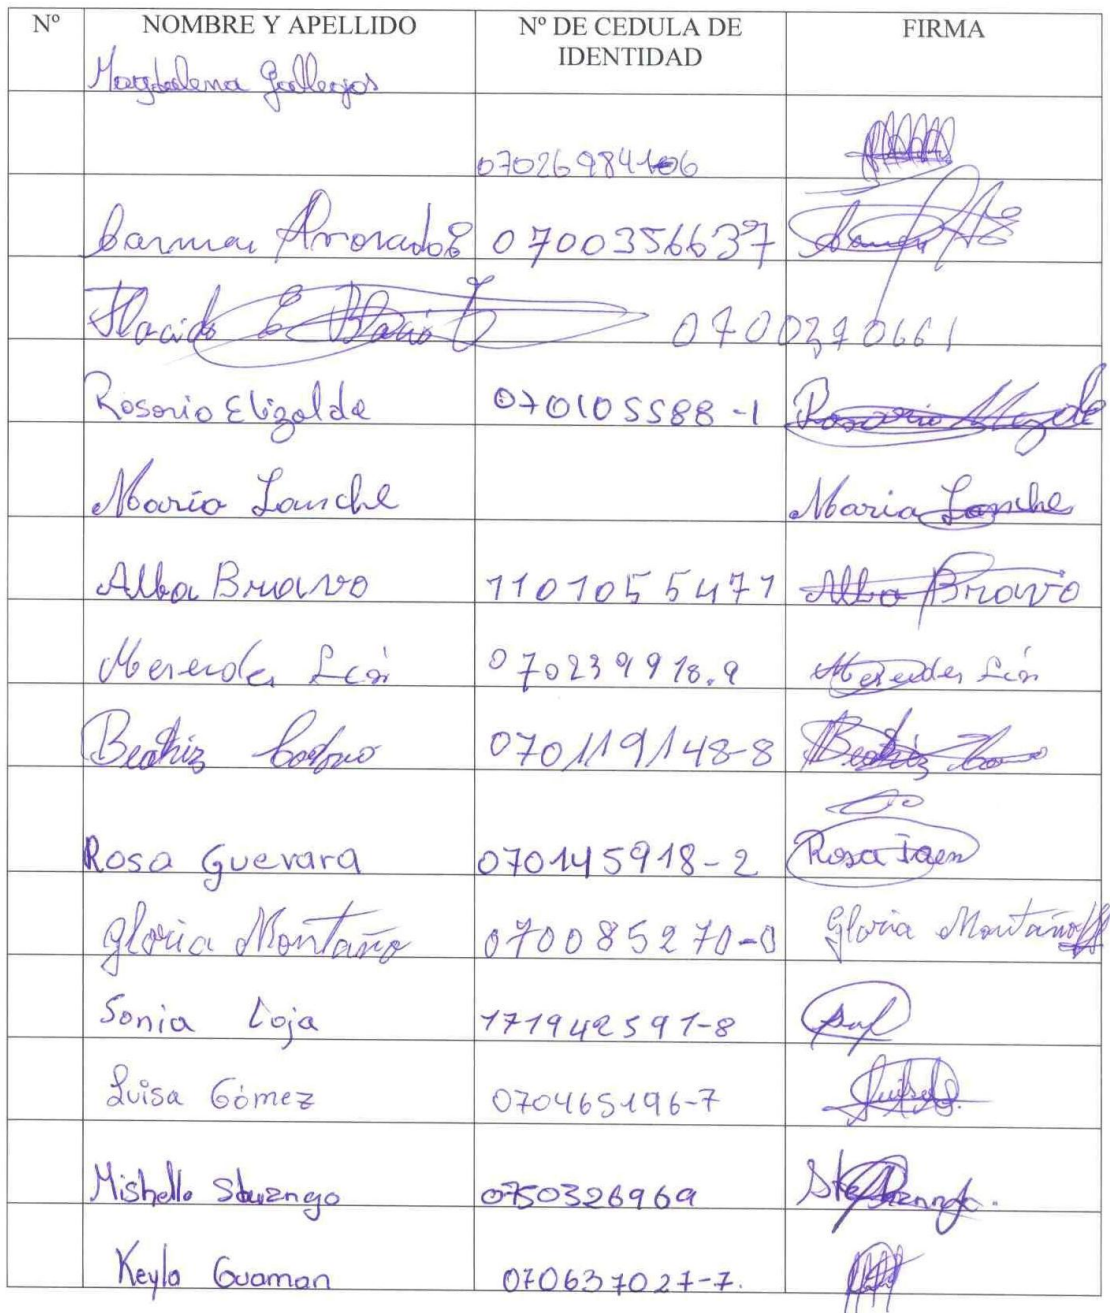 Nº NOMBRE Y APELLIDO Nº DE CEDULA DE IDENTIDAD FIRMA
Magdalena Gallegos
Carmen 0700356637
Placido 0700270661
Rosario Elizalde 070105588-1 Rosario
Maria Lanche Maria Lanche
Alba Bravo 1101055471 Alba Bravo
Mercedes León 070239918.9 Mercedes León
Beatriz 070119148-8 Beatriz
Rosa Guevara 070145918-2 Rosa Jaen
Gloria Montaño 070085270-0 Gloria Montaño
Sonia Loja 171942591-8
Luisa Gómez 070465196-7
Mishelle 0750326969
Keyla Guaman 070637027-7.